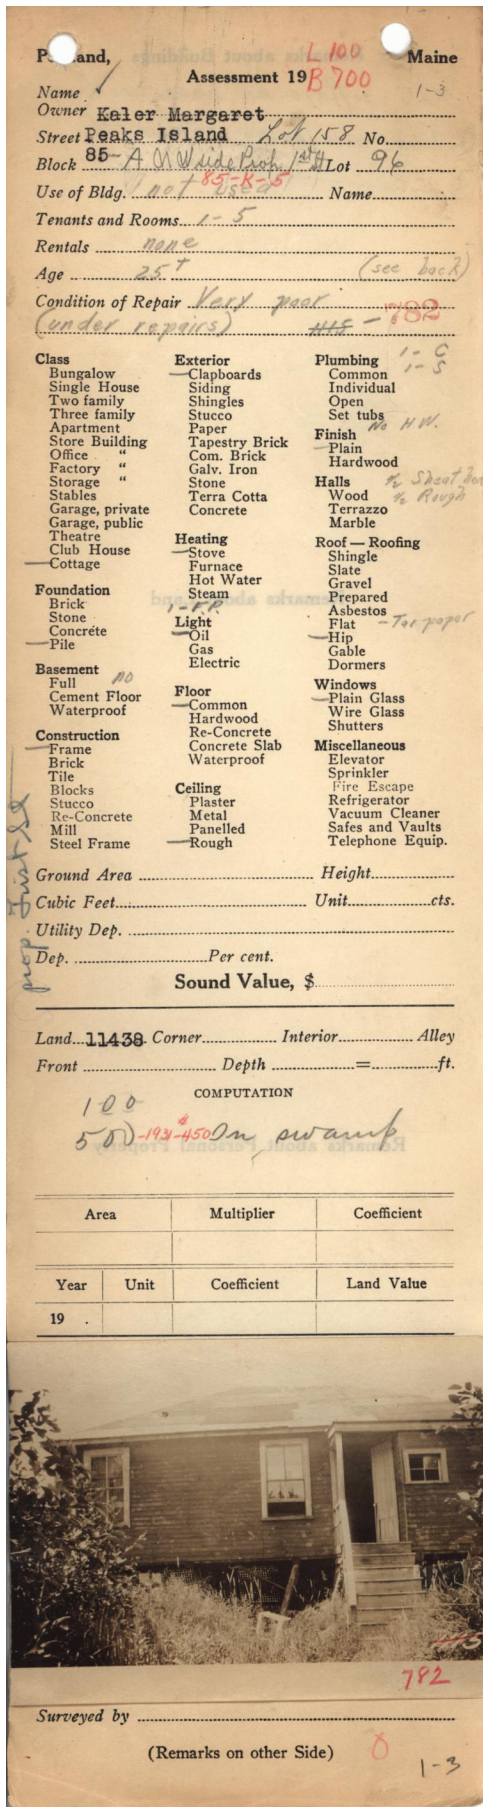 P land, L 100 Maine
Assessment 19 B 700
Name ✓ 1-3
Owner Kaler Margaret
Street Peaks Island Lot 158 No.
Block 85- A N W side Prop. 1st St Lot 96
85-K-5
Use of Bldg. not used Name
Tenants and Rooms 1-5
Rentals none
Age 25+ (see back)
Condition of Repair Very poor
(under repairs) - 782
Class
Bungalow
Single House
Two family
Three family
Apartment
Store Building
Office "
Factory "
Storage "
Stables
Garage, private
Garage, public
Theatre
Club House
—Cottage
Foundation
Brick
Stone
Concrete
—Pile
Basement
Full no
Cement Floor
Waterproof
Construction
—Frame
Brick
Tile
Blocks
Stucco
Re-Concrete
Mill
Steel Frame
Exterior
—Clapboards
Siding
Shingles
Stucco
Paper
Tapestry Brick
Com. Brick
Galv. Iron
Stone
Terra Cotta
Concrete
Heating
—Stove
Furnace
Hot Water
Steam
1-F.P.
Light
—Oil
Gas
Electric
Floor
—Common
Hardwood
Re-Concrete
Concrete Slab
Waterproof
Ceiling
Plaster
Metal
Panelled
—Rough
Plumbing 1-C
Common 1-S
Individual
Open
Set tubs
No H.W.
Finish
—Plain
Hardwood
Halls
Wood ½ Rough
Terrazzo
Marble
Roof — Roofing
Shingle
Slate
Gravel
Prepared
Asbestos
Flat - Tar paper
—Hip
Gable
Dormers
Windows
—Plain Glass
Wire Glass
Shutters
Miscellaneous
Elevator
Sprinkler
Fire Escape
Refrigerator
Vacuum Cleaner
Safes and Vaults
Telephone Equip.
prop. First St
Ground Area Height
Cubic Feet Unit cts.
Utility Dep.
Dep. Per cent.
Sound Value, $
Land 11438 Corner Interior Alley
Front Depth = ft.
COMPUTATION
100
500 -1931-$450 On swamp
Area Multiplier Coefficient
Year Unit Coefficient Land Value
19 .
782
Surveyed by
(Remarks on other Side)
1-3